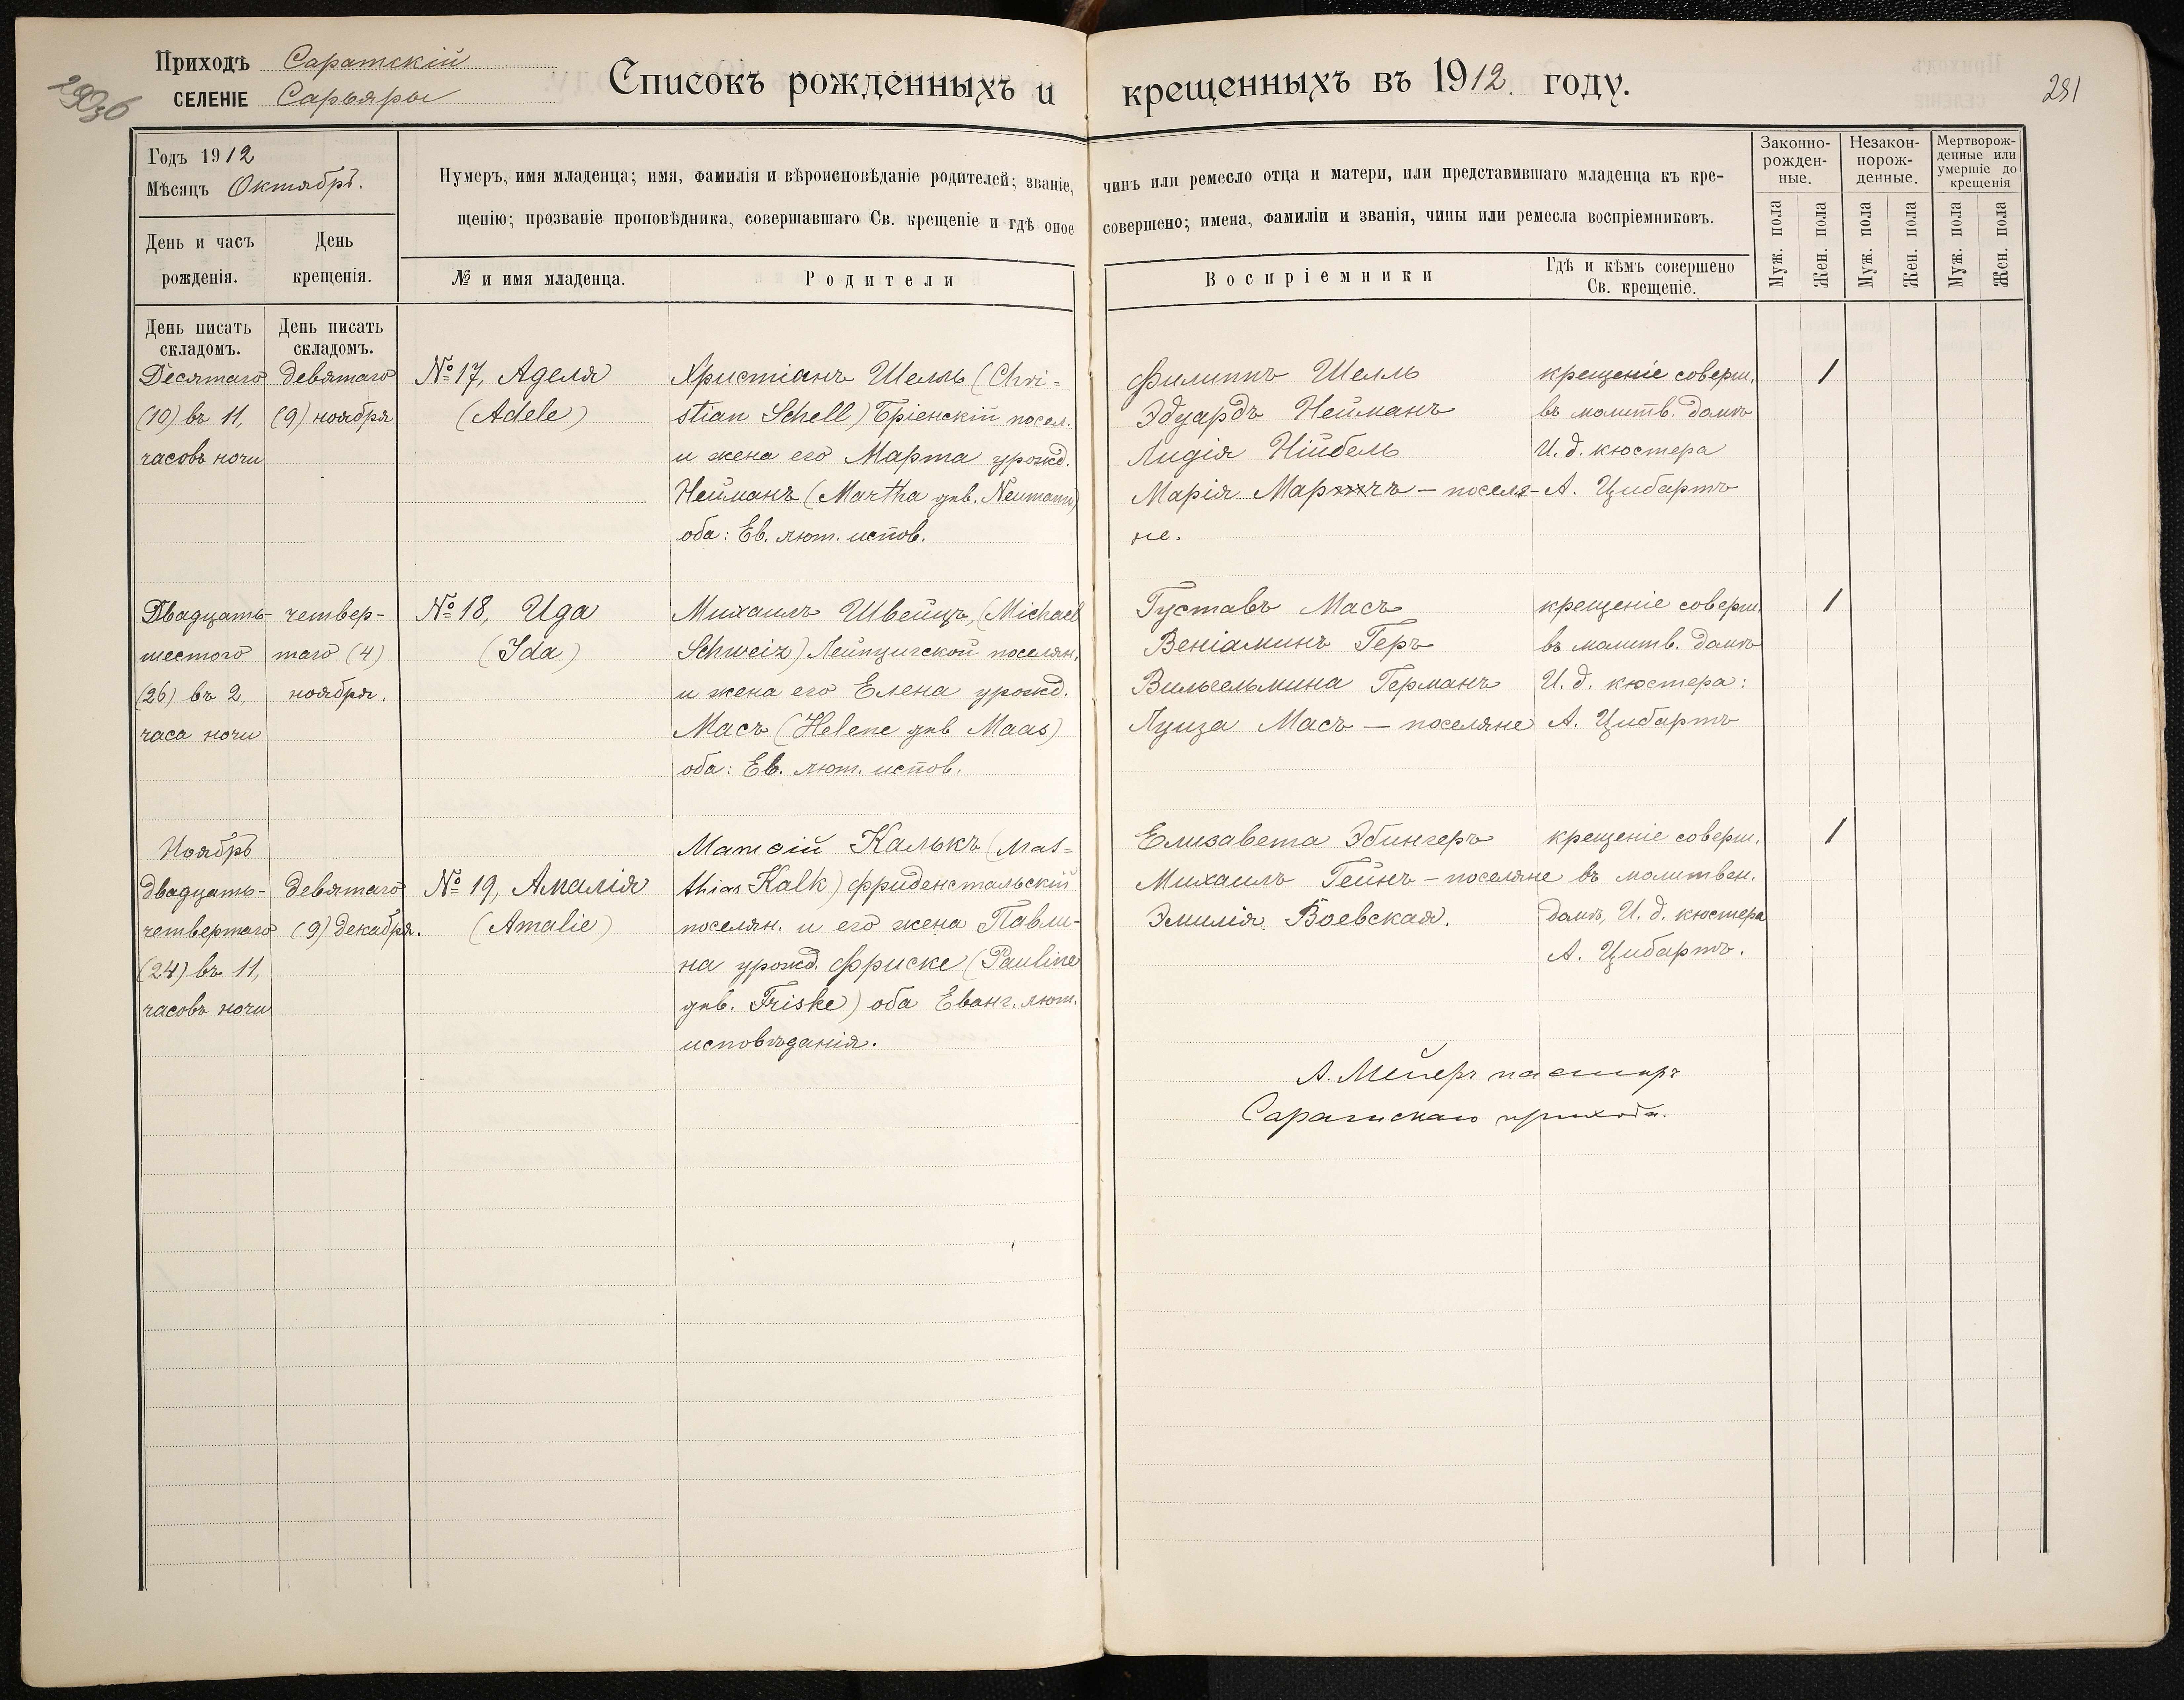 Приходъ Саратскій
СЕЛЕНІЕ Сарьяры
Списокъ рожденныхъ и крещенныхъ въ 1912 году.
281
Годъ 1912
Мѣсяцъ Октябрь.
День и часъ
рожденія.
День
крещенія.
Нумеръ, имя младенца; имя, фамилія и вѣроисповѣданіе родителей; званіе, чинъ или ремесло отца и матери, или представившаго младенца къ кре-
щенію; прозваніе проповѣдника, совершавшаго Св. крещеніе и гдѣ оное совершено; имена, фамиліи и званія, чины или ремесла воспріемниковъ.
№ и имя младенца.
Родители
Воспріемники
Гдѣ и кѣмъ совершено
Св. крещеніе.
Законно-
рожден-
ные.
Незакон-
норож-
денные.
Мертворож-
денные или
умершіе до
крещенія
Муж. пола
Жен. пола
Муж. пола
Жен. пола
Муж. пола
Жен. пола
День писать
складомъ.
День писать
складомъ.
Десятаго
(10) въ 11,
часовъ ночи
девятаго
(9) ноября
№ 17, Аделя
(Adele)
Христіанъ Шелль (Chri-
stian Schell) Бріенскій посел.
и жена его Марта урожд.
Нейманъ (Martha geb. Neumann)
оба: Ев. лют. испов.
Филиппъ Шелль
Эдуардъ Нейманъ
Лидія Нійбель
Марія – поселя-
не.
крещеніе соверш.
въ молитв. домѣ
И. д. кюстера
А. Цибартъ
1
Двадцать-
шестого
(26) въ 2,
часа ночи
четвер-
таго (4)
ноября.
№ 18, Ида
(Ida)
Михаилъ Швейцъ, (Michael
Schweiz) Лейпцигской поселян.
и жена его Елена урожд.
Масъ (Helene geb Maas)
оба: Ев. лют. испов.
Густавъ Масъ
Веніаминъ Геръ
Вильгельмина Германъ
Луиза Масъ – поселяне
крещеніе соверш.
въ молитв. домѣ
И. д. кюстера:
А. Цибартъ
1
Ноябрь
двадцать-
четвертаго
(24) въ 11,
часовъ ночи
девятаго
(9) декабря.
№ 19, Амалія
(Amalie)
Матѳій Калькъ (Mat-
thias Kalk) фриденстальскій
поселян. и его жена Павли-
на урожд. Фриске (Pauline
geb. Friske) оба Еванг. лют.
исповѣданія.
Елизавета Эбингеръ
Михаилъ Гейнъ – поселяне
Эмилія Воевская.
крещеніе соверш.
въ молитвен.
домѣ, И. д. кюстера
А. Цибартъ.
1
А. Мейеръ пасторъ
Саратскаго прихода.